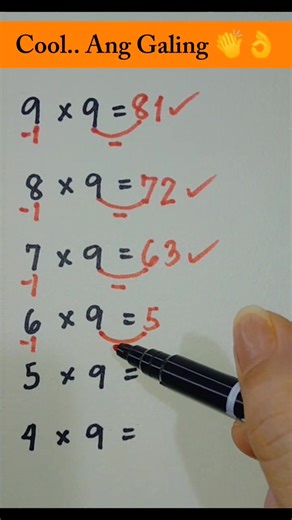 Cool.. Ang Galing 👏👌
9 × 9 = 81 ✓
-1 -
8 × 9 = 72 ✓
-1 -
7 × 9 = 63 ✓
-1 -
6 × 9 = 5
-1
5 × 9 =
4 × 9 =